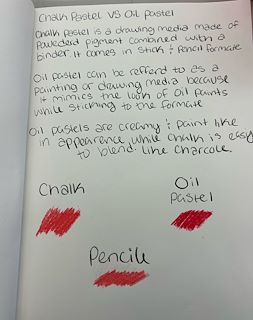 Chalk Pastel VS Oil Pastel
Chalk Pastel is a drawing media made of
Powederd pigment combined with a
binder. It comes in Stick & Pencil formate
Oil pastel can be refferd to as a
painting or drawing media because
it mimics the look of oil paints
while sticking to the formate
Oil pastels are creamy & paint like
in appearance while chalk is easy
to blend. like charcole.
Chalk
Oil
Pastel
Pencile